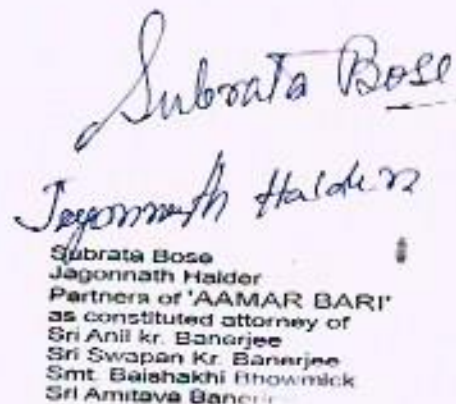 Subrata Bose
Jagonnath Halder
Subrata Bose
Jagonnath Halder
Partners of 'AAMAR BARI'
as constituted attorney of
Sri Anil kr. Banerjee
Sri Swapan Kr. Banerjee
Smt. Baishakhi Bhowmick
Sri Amitava Banerjee